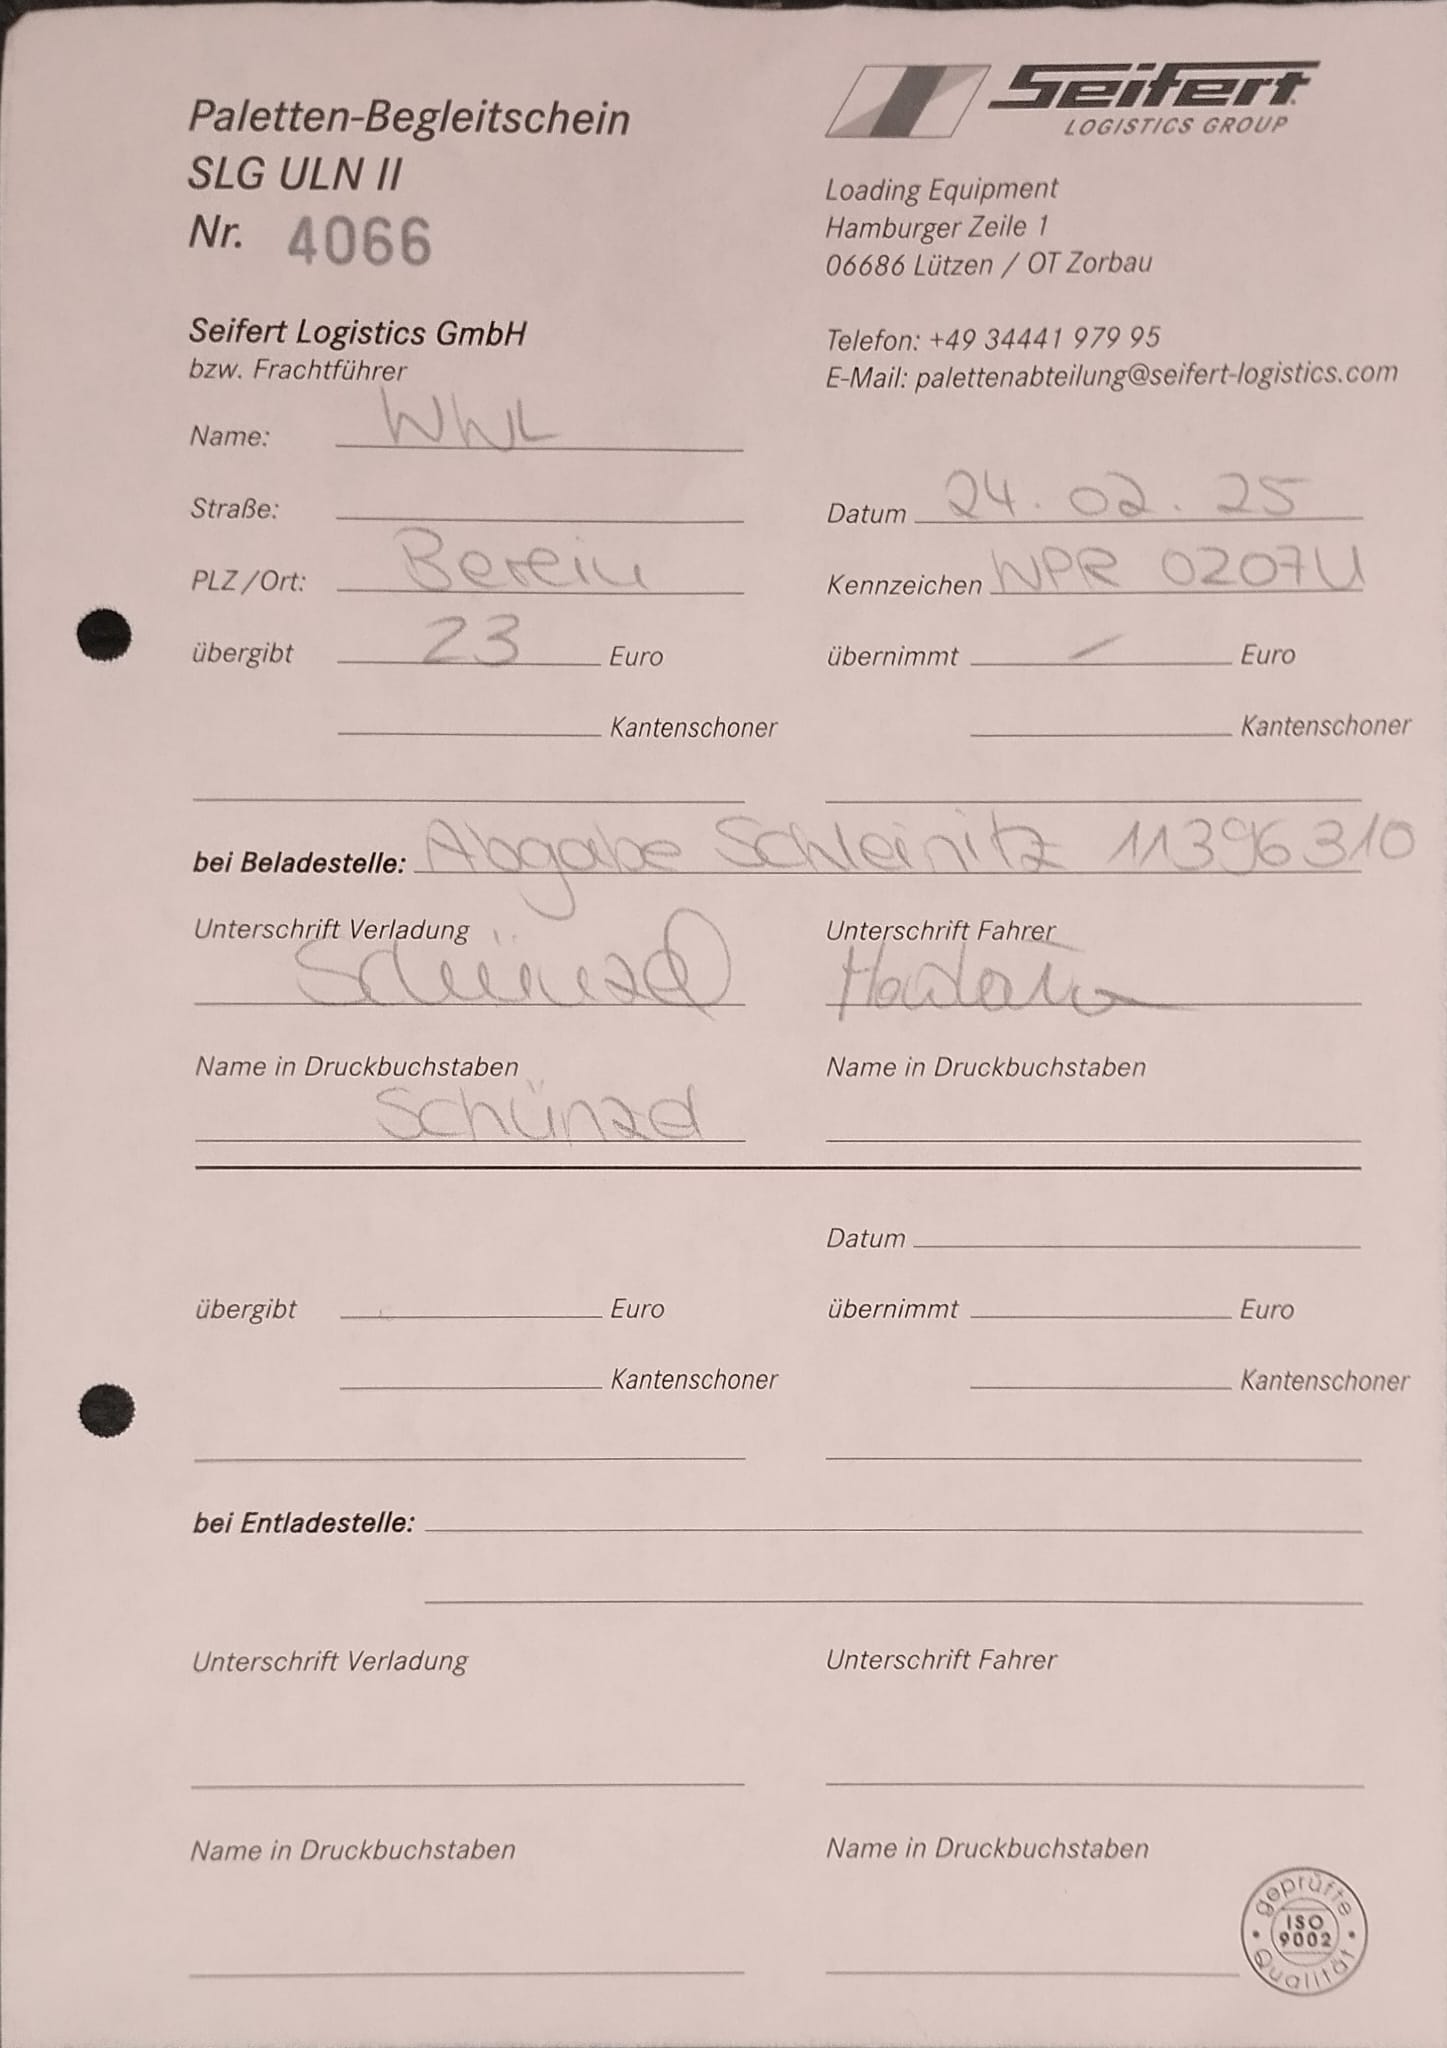 Seifert
LOGISTICS GROUP
Paletten-Begleitschein
SLG ULN II
Nr. 4066
Loading Equipment
Hamburger Zeile 1
06686 Lützen / OT Zorbau
Seifert Logistics GmbH
bzw. Frachtführer
Telefon: +49 34441 979 95
E-Mail: palettenabteilung@seifert-logistics.com
Name: WWL
Straße:
Datum 24.02.25
PLZ/Ort:
Kennzeichen WPR 0207U
übergibt 23 Euro
übernimmt / Euro
Kantenschoner
Kantenschoner
bei Beladestelle: Abgabe Schleinitz 11396310
Unterschrift Verladung
Unterschrift Fahrer
Schünzel
Name in Druckbuchstaben
Name in Druckbuchstaben
Schünzel
Datum
übergibt Euro
übernimmt Euro
Kantenschoner
Kantenschoner
bei Entladestelle:
Unterschrift Verladung
Unterschrift Fahrer
Name in Druckbuchstaben
Name in Druckbuchstaben
geprüfte
ISO
9002
Qualität